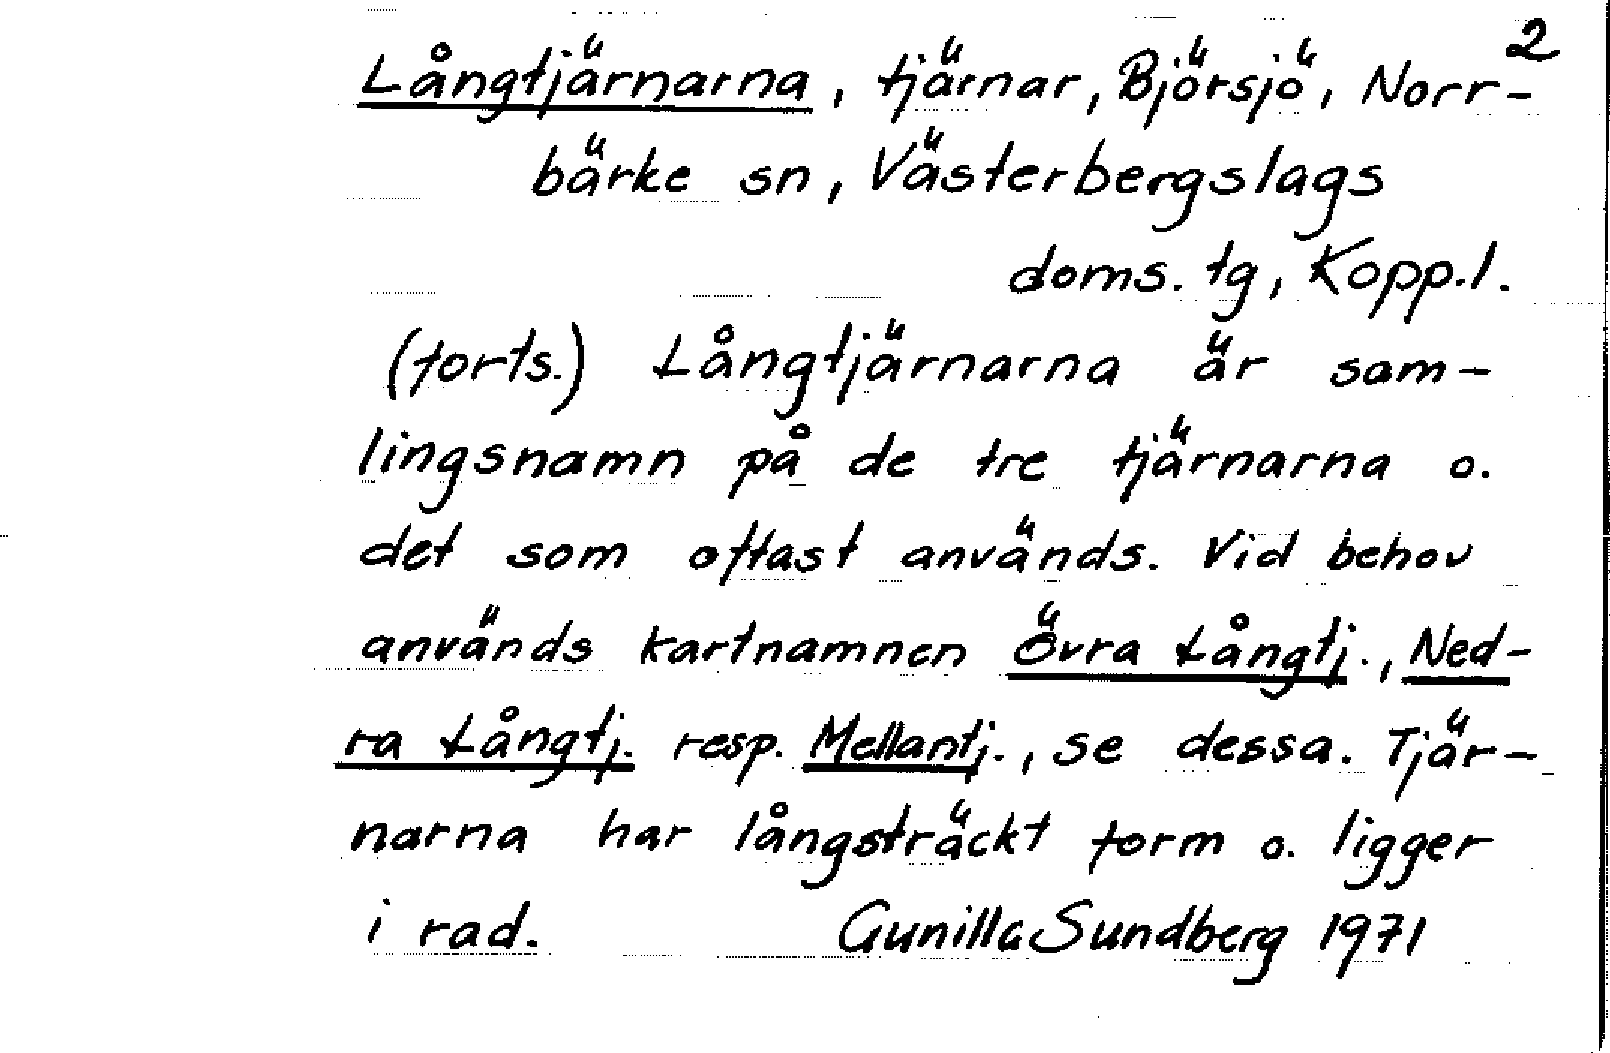 2
Långtjärnarna, tjärnar, Björsjö, Norr-
bärke sn, Västerbergslags
doms. tg, Kopp.l.
(forts.) Långtjärnarna är sam-
lingsnamn på de tre tjärnarna o.
det som oftast används. Vid behov
används kartnamnen Övra Långtj., Ned-
ra Långtj. resp. Mellantj., se dessa. Tjär-
narna har långsträckt form o. ligger
i rad. Gunilla Sundberg 1971